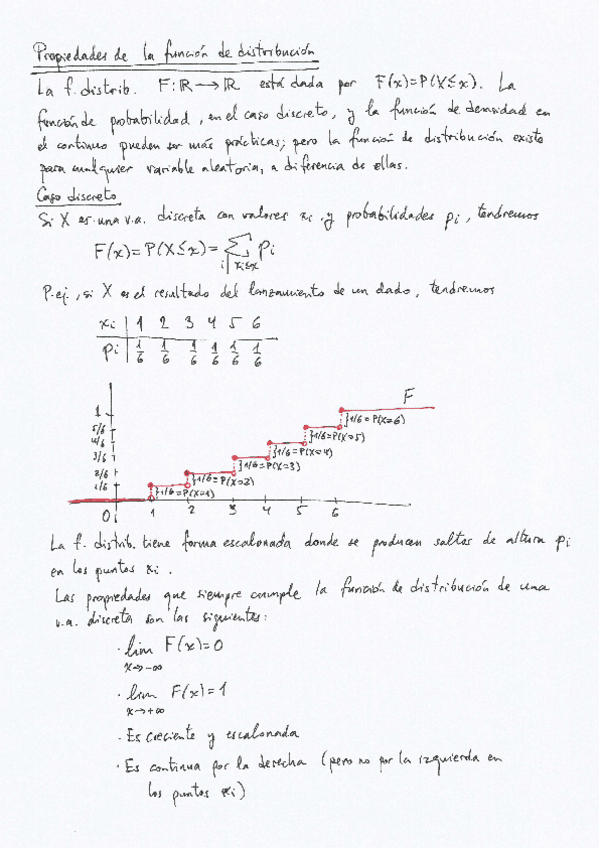 Propiedades de la función de distribución
La f. distrib. F: ℝ → ℝ está dada por F(x)=P(X≤x). La
función de probabilidad, en el caso discreto, y la función de densidad en
el continuo pueden ser más prácticas; pero la función de distribución existe
para cualquier variable aleatoria, a diferencia de ellas.
Caso discreto
Si X es una v.a. discreta con valores xi y probabilidades pi, tendremos
F(x)=P(X≤x)= ∑ pi
i | xi≤x
P. ej., si X es el resultado del lanzamiento de un dado, tendremos
xi | 1 2 3 4 5 6
pi | 1/6 1/6 1/6 1/6 1/6 1/6
F
1
}1/6=P(X=6)
5/6
}1/6=P(X=5)
4/6
}1/6=P(X=4)
3/6
}1/6=P(X=3)
2/6
}1/6=P(X=2)
1/6
}1/6=P(X=1)
0 1 2 3 4 5 6
La f. distrib. tiene forma escalonada donde se producen saltos de altura pi
en los puntos xi.
Las propiedades que siempre cumple la función de distribución de una
v.a. discreta son las siguientes:
· lim F(x)=0
x→-∞
· lim F(x)=1
x→+∞
· Es creciente y escalonada
· Es continua por la derecha (pero no por la izquierda en
los puntos xi)